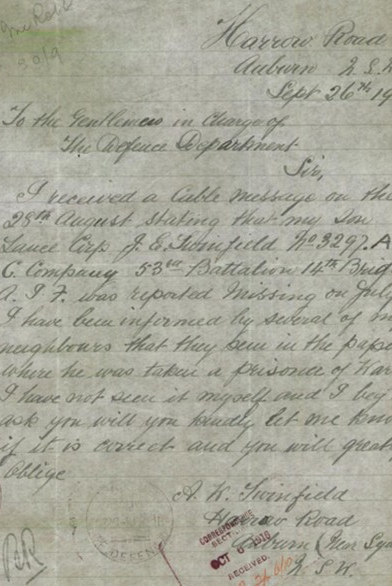 Harrow Road
Auburn N.S.W
Sept 26th 19
To the Gentlemen in Charge of
The Defence Department
Sir,
I received a Cable Message on the
28th August stating that my son
Lance Corp J. E. Twinfield No 3297.A
C Company 53rd Battalion 14th Brig
A.I.F. was reported Missing on July
I have been informed by several of m
neighbours that they seen in the pape
where he was taken a prisoner of War
I have not seen it myself and I beg
ask you will you kindly let me kno
if it is correct and you will great
Oblige
A. K. Twinfield
Harrow Road
Auburn (
N.S.W.
CORRESPONDENCE
SECT
OCT 6 1916
RECEIVED
DEFENCE